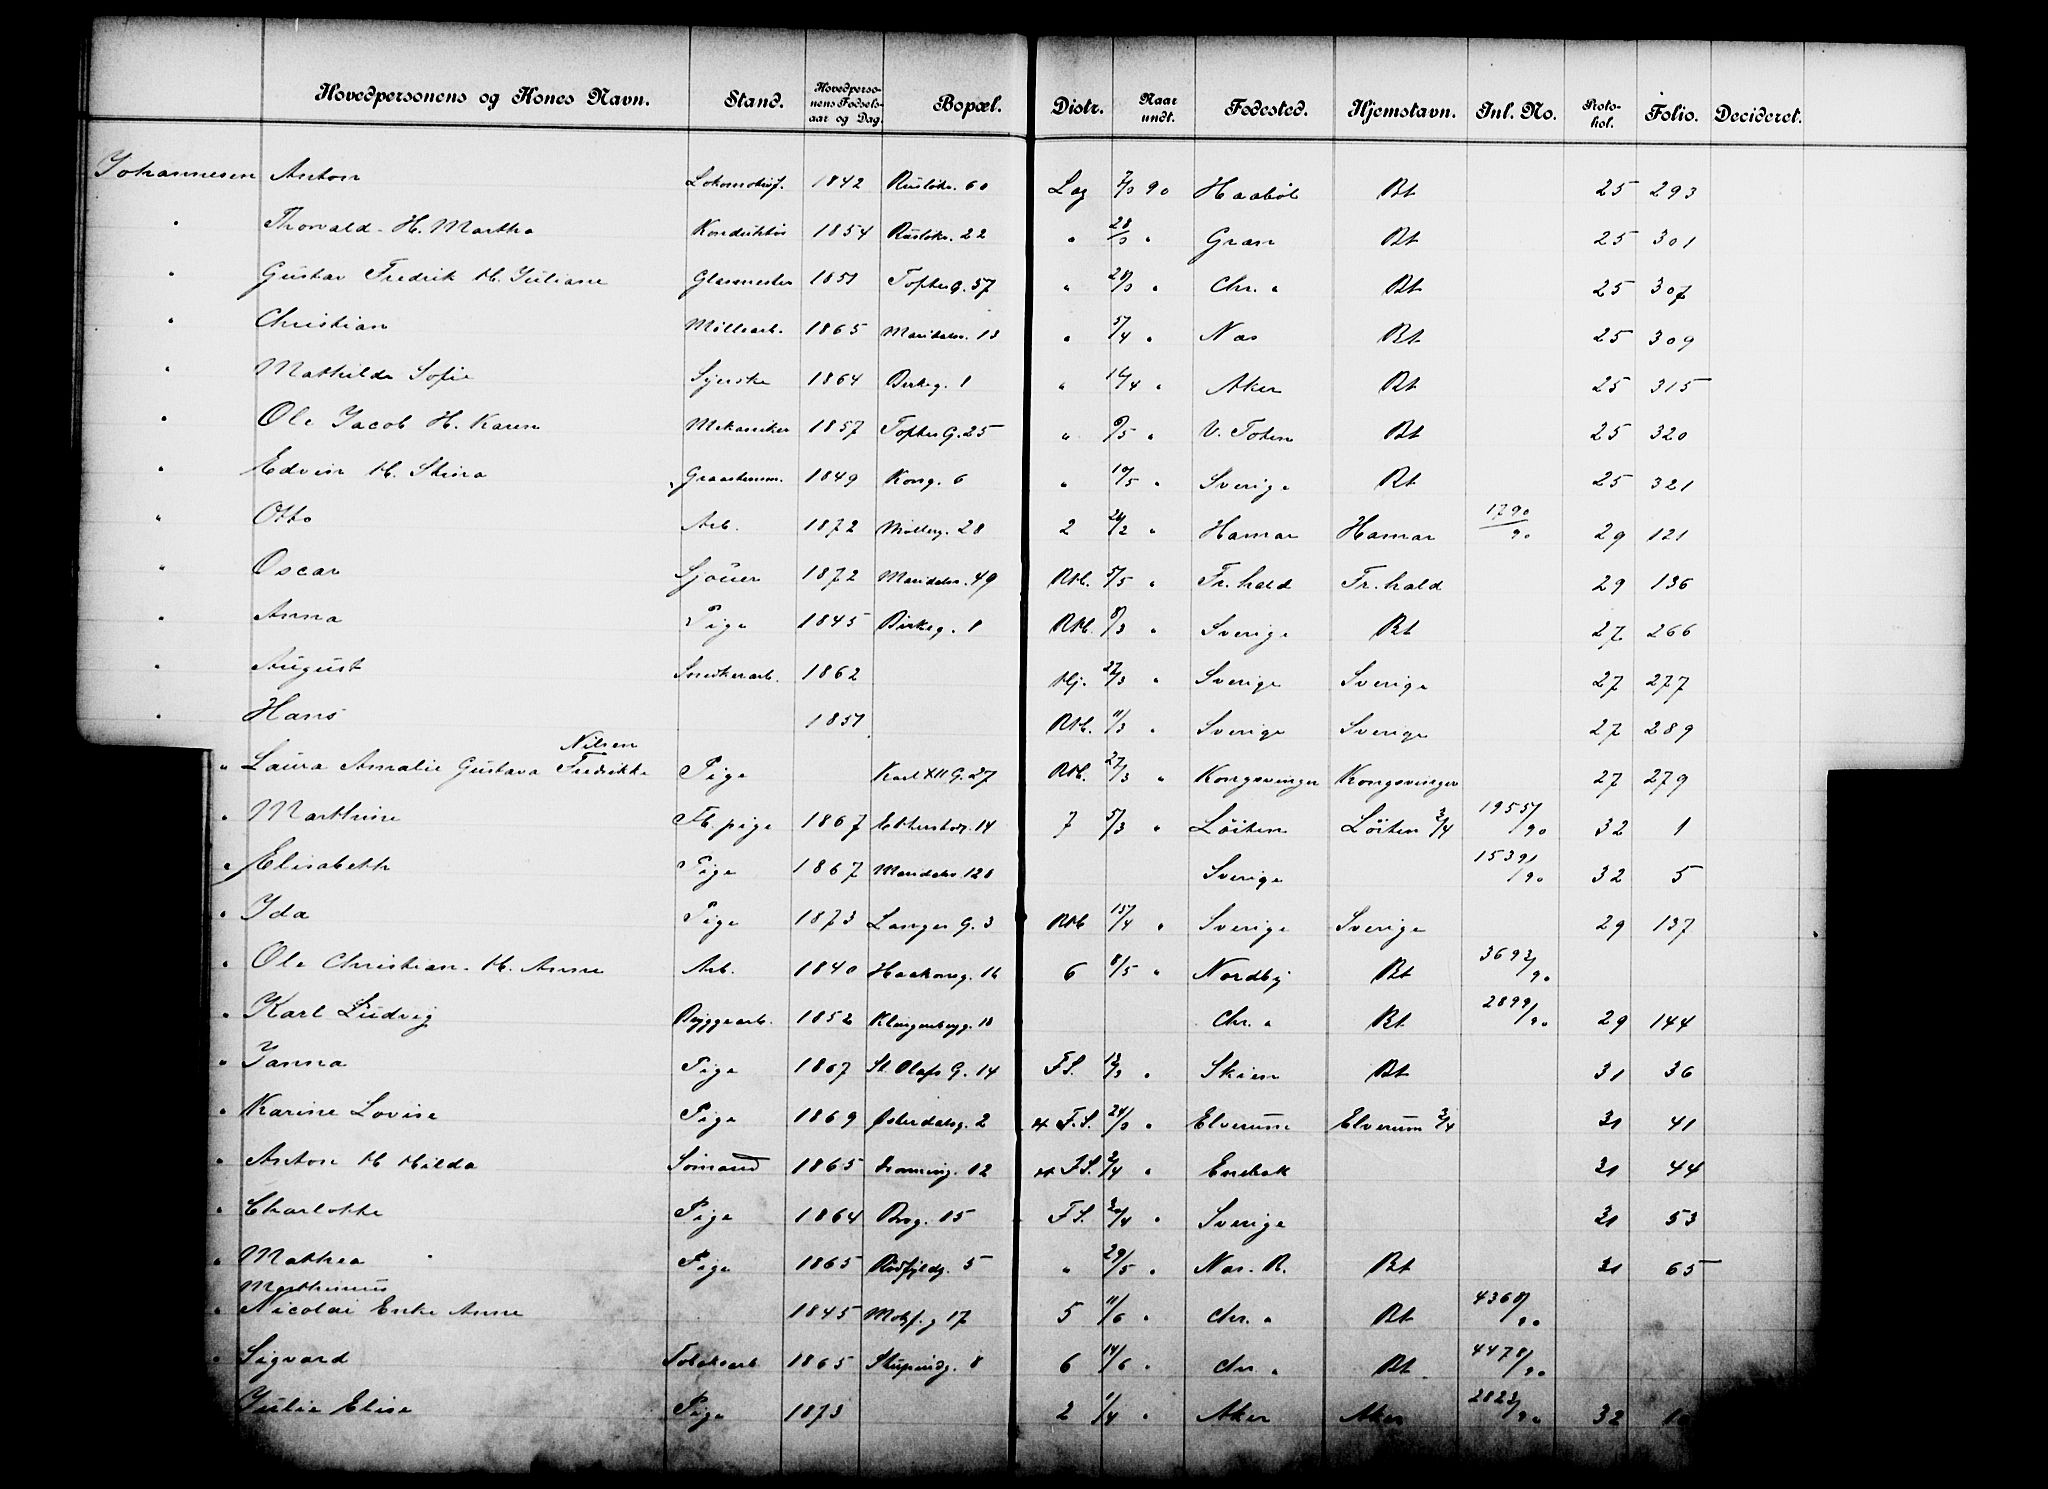 Hovedpersonens og Kones Navn. Stand. Hovedperso-nens Fødsels-aar og Dag. Bopæl. Distr. Naar undt. Fødested. Hjemstavn. Jnl. No. Proto-kol. Folio. Decideret.
Johannesen Anton Lokomotivf. 1842 Rusløkv. 60 Lag 90 Haabøl Bt 25 293
" Thorvald H. Martha Konduktør 1854 Rusløkv. 22 " 28/3 " Gran Bt 25 301
" Gustav Fredrik H. Juliane Glasmester 1851 Toftes G. 57 " 28/3 " Chr. a Bt 25 307
" Christian Møllearb. 1865 Maridalsv. 13 " 5/4 " Nes Bt 25 309
" Mathilde Sofie Syerske 1864 Birkeg. 1 " 12/4 " Aker Bt 25 315
" Ole Jacob H. Karen Mekaniker 1857 Toftes G. 25 " 9/5 " V. Toten Bt 25 320
" Edvin H. Stina Graastensm. 1849 Kong. 6 " 10/5 " Sverige Bt 25 321
" Otto Arb. 1872 Møllerg. 28 2 " Hamar Hamar 1790/90 29 121
" Oscar Sjouer 1872 Maridalsv. 49 RH. 5/5 " Fr.hald Fr.hald 29 136
" Anna Pige 1845 Birkeg. 1 RH. 8/3 " Sverige Bt 27 266
" August Snedkerarb. 1862 Hj. 27/3 " Sverige Sverige 27 277
" Hans 1851 RH. 11/3 " Sverige Sverige 27 289
" Laura Amalie Gustava Nilsen Fredrikke Pige Karl XII G. 27 RH. 27/3 " Kongsvinger Kongsvinger 27 279
" Marthine Fb. pige 1867 14 7 5/3 " Løiten Løiten 3/4 1955/90 32 1
" Elisabeth Pige 1867 Maridalsv 128 Sverige 1539/90 32 5
" Ida Pige 1873 Langes G. 3 RH 15/4 " Sverige Sverige 29 137
" Ole Christian H. Anne Arb. 1840 Haakonsg. 16 6 8/5 " Nordby Bt 3693/90
" Karl Ludvig Byggearb. 1852 Klingenbergg. 18 Chr. a Bt 2899/90 29 144
" Janna Pige 1867 St. Olafs G. 14 F.S. 13/3 " Skien Bt 31 36
" Karine Lovise Pige 1869 Østerdalsg. 2 F.S. 24/3 " Elverum Elverum 3/4 31 41
" Anton H Hilda Sømand 1865 12 F.S. 2/4 " Enebak 31 44
" Charlotte Pige 1864 Brog. 15 F.S. " Sverige 31 53
" Mathea Pige 1865 Risfjeldg. 5 " 29/5 " Nes. R. Bt 31 65
Marthinius
" Nicolai Enke Anne 1845 17 5 11/6 " Chr. a Bt 4368/90
" Sigvard Tobaksarb 1865 Stupindg. 8 6 14/6 " Chr. a Bt 4478/90
Julie Elise Pige 1873 2 1/4 " Aker Aker 2823/90 32